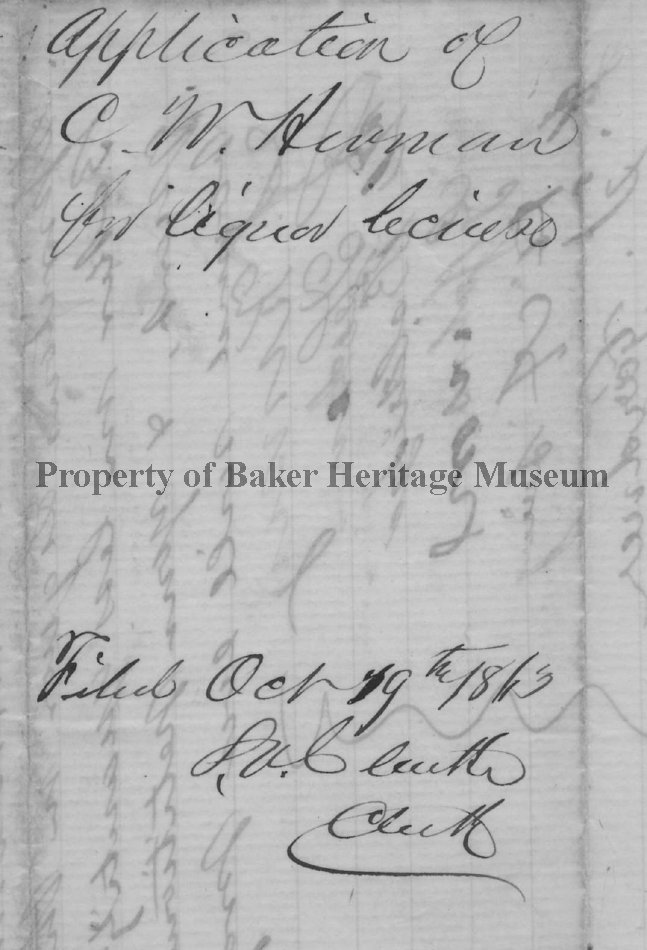 Application of
C. W. Herman
for liquor license
Property of Baker Heritage Museum
Filed Oct 19th 1863
Clerk